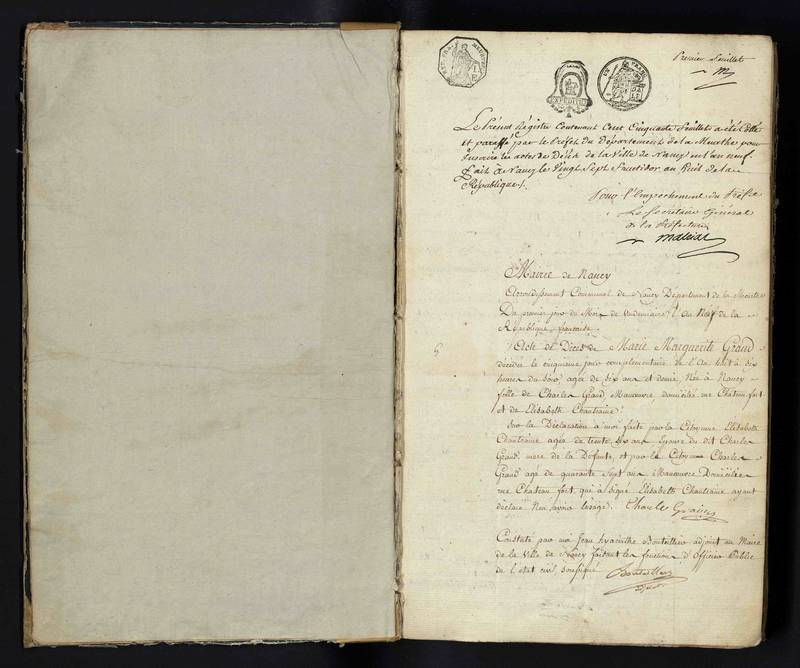 Premier feuillet
EXPEDITION
Le Présent Régistre Contenant Cent Cinquante feuillets a été Cotté
et paraffé par le Préfet du Département de la Meurthe pour
Inscrire les actes de Décès de la Ville de Nancy en l'an neuf.
Fait à Nancy le Vingt Sept fructidor an huit de la
République.
Pour l'Empechement du Préfet
Le Secrétaire Général
de la Préfecture
Mairie de Nancy
Arrondissement Communal de Nancy Département de la Meurthe
Du premier jour du Mois de Vendemiaire l'An Neuf de la
République française.
Acte de Décès de Marie Marguerite Grand
décédée le cinquieme jour complementaire de l'an huit à dix
heures du soir, agée de dix ans et demie, Née à Nancy
fille de Charles Grand, Manoeuvre domicilié rue Chateau fort
et de Elisabeth Chantraine.
Sur la Déclaration à moi faite par la Citoyenne Elisabeth
Chantraine agée de trente ans Epouse du dit Charles
Grand mere de la Défunte, et par le Citoyen Charles
Grand agé de quarante sept ans Manoeuvre Domicilié
rue Chateau fort, qui à Signé, Elisabeth Chantraine ayant
déclaré Nen avoir l'usage. Charle
Constaté par moi Jean hyacinthe Bouteillier adjoint au Maire
de la Ville de Nancy faisant les fonctions d'Officier Public
de l'état civil soussigné Bouteiller